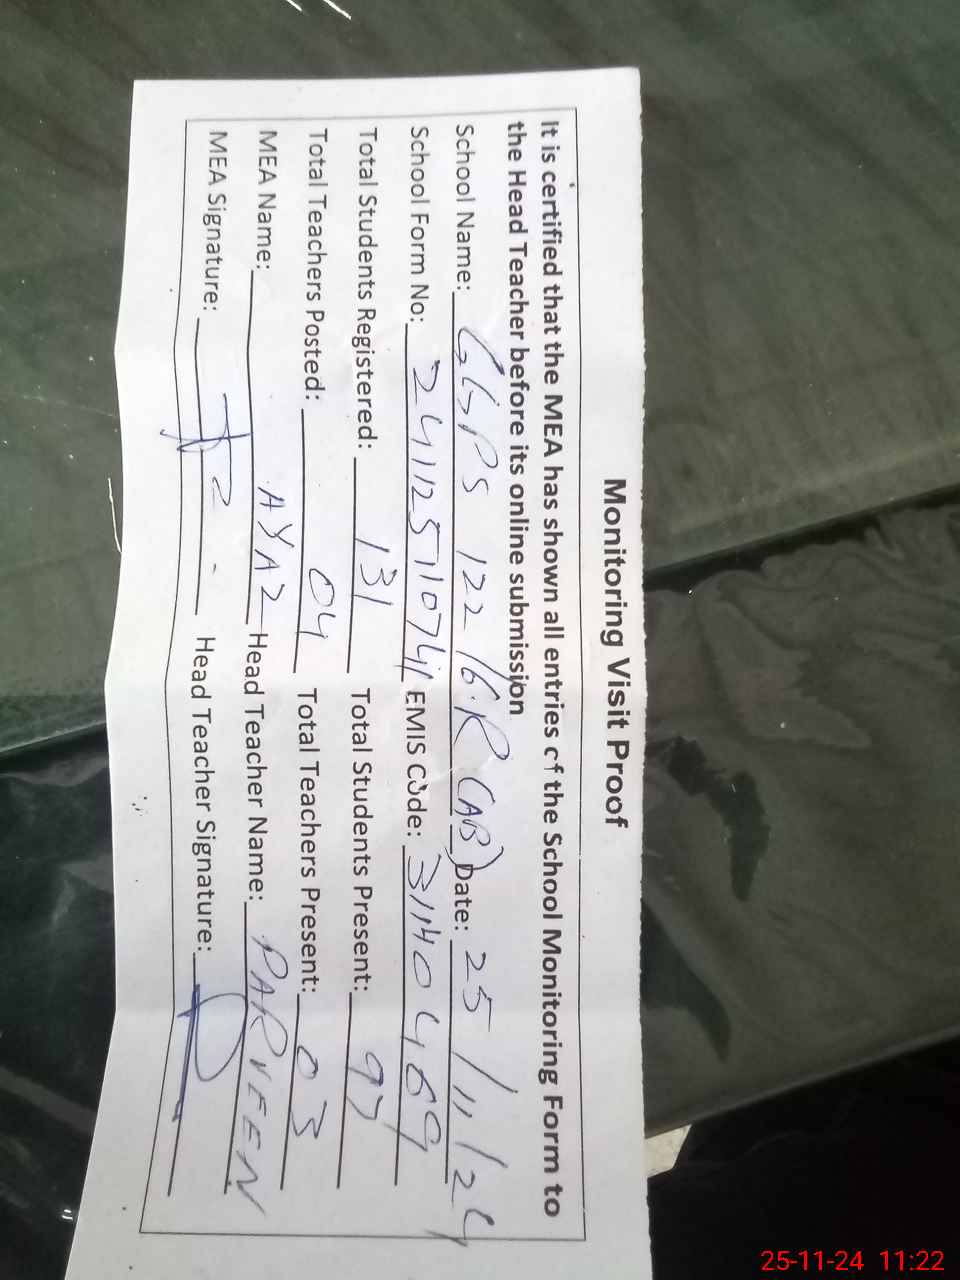 Monitoring Visit Proof
It is certified that the MEA has shown all entries of the School Monitoring Form to
the Head Teacher before its online submission
School Name: GGPS 122 16.R (AB) Date: 25/11/24
School Form No: EMIS Code: 31140469
Total Students Registered: 131 Total Students Present: 97
Total Teachers Posted: 04 Total Teachers Present: 03
MEA Name: AYAZ Head Teacher Name: PARVEEN
MEA Signature: Head Teacher Signature:
25-11-24 11:22